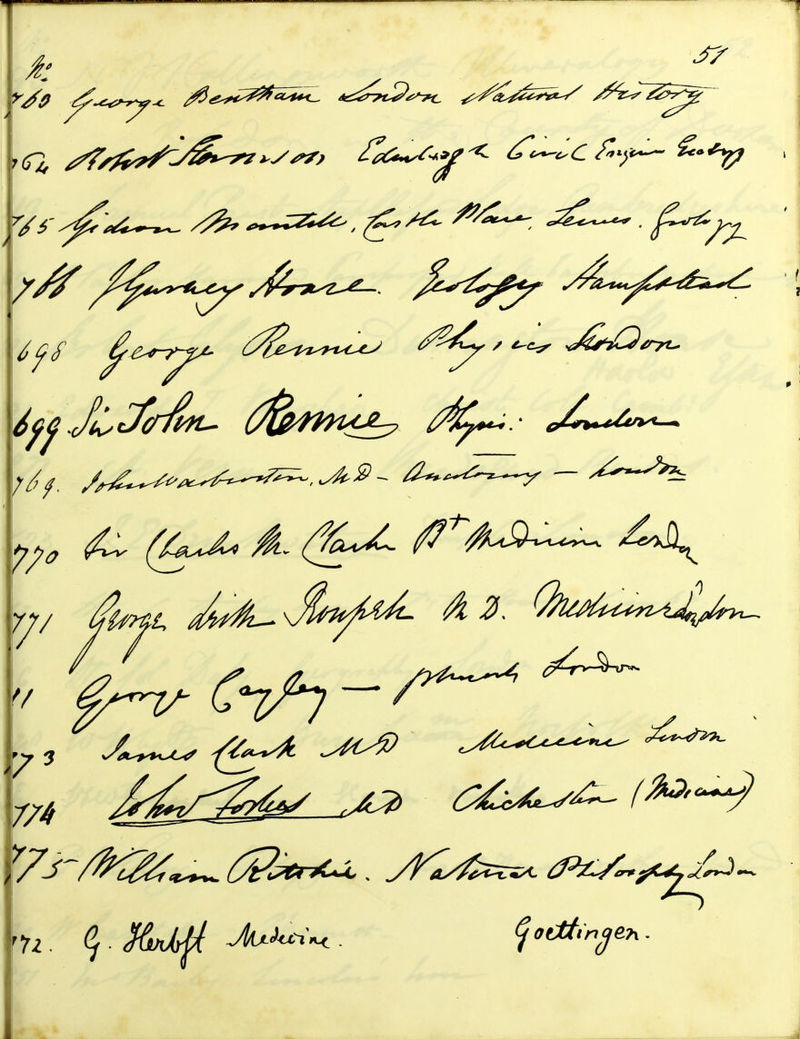 51
No
763 George Bentham London Natural History
764 Robert Stevenson Edinburgh Civil Engin Geology
765 Gideon Mantell, Castle Place, Lewes. Geology
766 J Gurney Hoare. Geology Hampstead
698 George Rennie Physics London
699 Sir John Rennie Physi: London
769. John Warburton, MD - Anatomy - London
770 Sir Charles M. Clarke Bt Medicine London
771 George Leith Roupell M D. Medicine London
11 George Cayley — London
773 James Clark MD Medecine London
774 John Forbes MD Chichester (Medicine)
775 William Ritchie. Natural Philosophy London
772. G. Herbst Medecine. Goettingen.